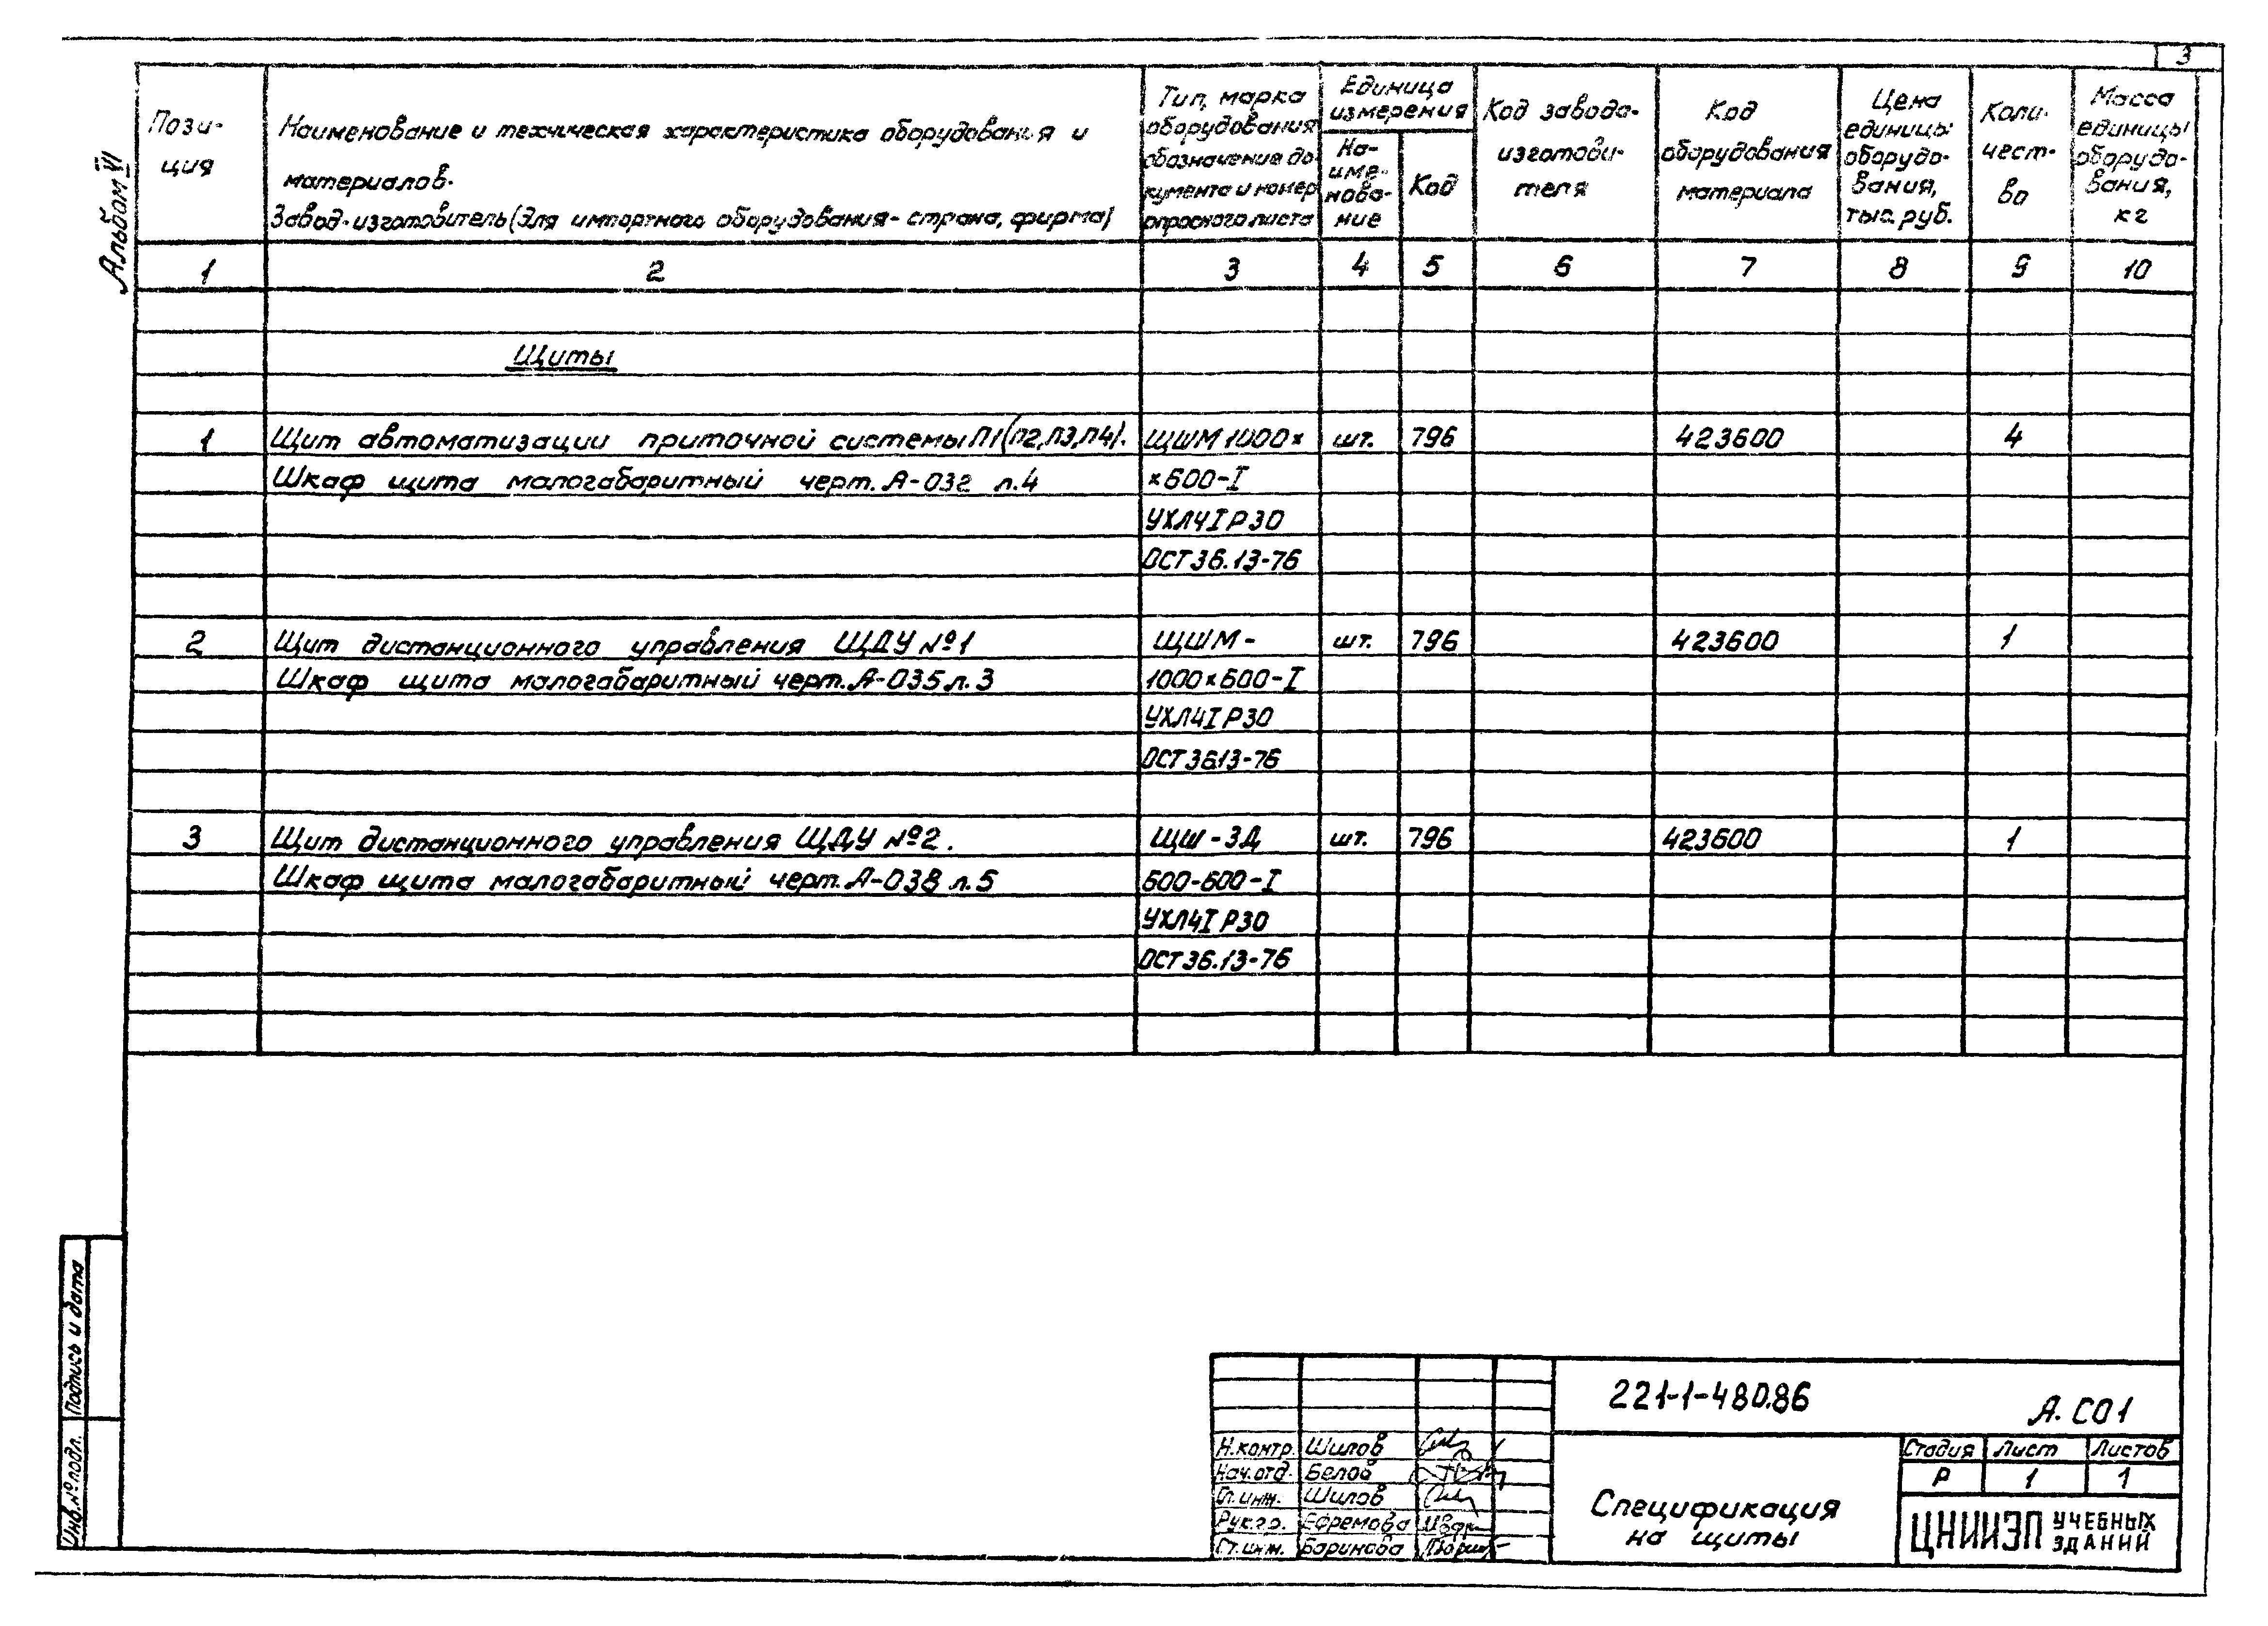 3
Альбом VI
Пози-
ция
Наименование и техническая характеристика оборудования и
материалов.
Завод-изготовитель (для импортного оборудования - страна, фирма)
Тип, марка
оборудования
обозначение до-
кумента и номер
опросного листа
Единица
измерения
На-
име-
нова-
ние
Код
Код завода-
изготови-
теля
Код
оборудования
материала
Цена
единицы
оборудо-
вания,
тыс. руб.
Коли-
чест-
во
Масса
единицы
оборудо-
вания,
кг
1 2 3 4 5 6 7 8 9 10
Щиты
1 Щит автоматизации приточной системы П1 (П2, П3, П4). ЩШМ 1000× шт. 796 423600 4
Шкаф щита малогабаритный черт. А-032 л.4 ×600-I
УХЛ4 IP30
ОСТ 36.13-76
2 Щит дистанционного управления ЩДУ №1 ЩШМ- шт. 796 423600 1
Шкаф щита малогабаритный черт. А-035 л.3 1000×600-I
УХЛ4 IP30
ОСТ 3613-76
3 Щит дистанционного управления ЩДУ №2. ЩШ-ЗД шт. 796 423600 1
Шкаф щита малогабаритный черт. А-038 л.5 600-600-I
УХЛ4 IP30
ОСТ 36.13-76
Подпись и дата
Инв.№ подл.
221-1-480.86 А.СО1
Н.контр. Шилов
Нач.отд. Белов
Гл.инж. Шилов
Рук.гр. Ефремова
Ст.инж. Баринова
Спецификация
на щиты
Стадия Лист Листов
Р 1 1
ЦНИИЭП УЧЕБНЫХ
ЗДАНИЙ